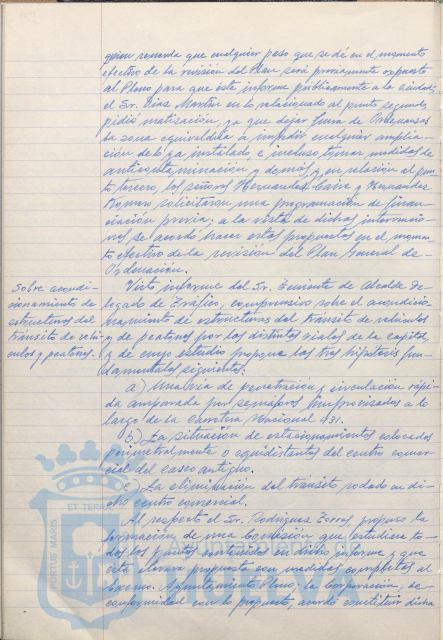 quien recuerda que cualquier paso que se dé en el momento
efectivo de la revisión del Plan será previamente expuesto
al Pleno para que éste informe públicamente a la ciudad;
el Sr. Díaz Martín en lo relacionado al punto segundo,
pidió matización, ya que dejar fuera de Ordenanzas
la zona equivaldría a impedir cualquier amplia-
ción de lo ya instalado e incluso, tomar medidas de
anticontaminación y demás y en relación al pun-
to tercero, los señores Hernández Caire y Hernández
Romero solicitaron una programación de finan-
ciación previa; a la vista de dichas intervencio-
nes se acordó hacer estas propuestas en el momen-
to efectivo de la revisión del Plan General de
Ordenación.
Sobre acondi-
cionamiento de
estructuras del
tránsito de vehí-
culos y peatones.
Visto informe del Sr. Teniente de Alcalde De-
legado de Tráfico, comprensivo sobre el acondicio-
namiento de estructuras del tránsito de vehículos
y de peatones por los distintos viales de la capital,
y de cuyo estudio propone las tres hipótesis fun-
damentales siguientes:
a) Una vía de penetración y circulación rápi-
da amparada por semáforos sincronizados a lo
largo de la Carretera Nacional 431.
b) La situación de estacionamientos colocados
perimetralmente o equidistantes del centro comer-
cial del casco antiguo.
c) La eliminación del tránsito rodado en di-
cho centro comercial.
Al respecto el Sr. Rodríguez Torres propuso la
formación de una Comisión que estudiara to-
dos los puntos contenidos en dicho informe y que
ésta elevara propuesta con medidas completas al
Excmo. Ayuntamiento Pleno; la Corporación, de
conformidad con lo propuesto, acordó constituir dicha
PORTUS MARIS
ET TERR
HUELVA